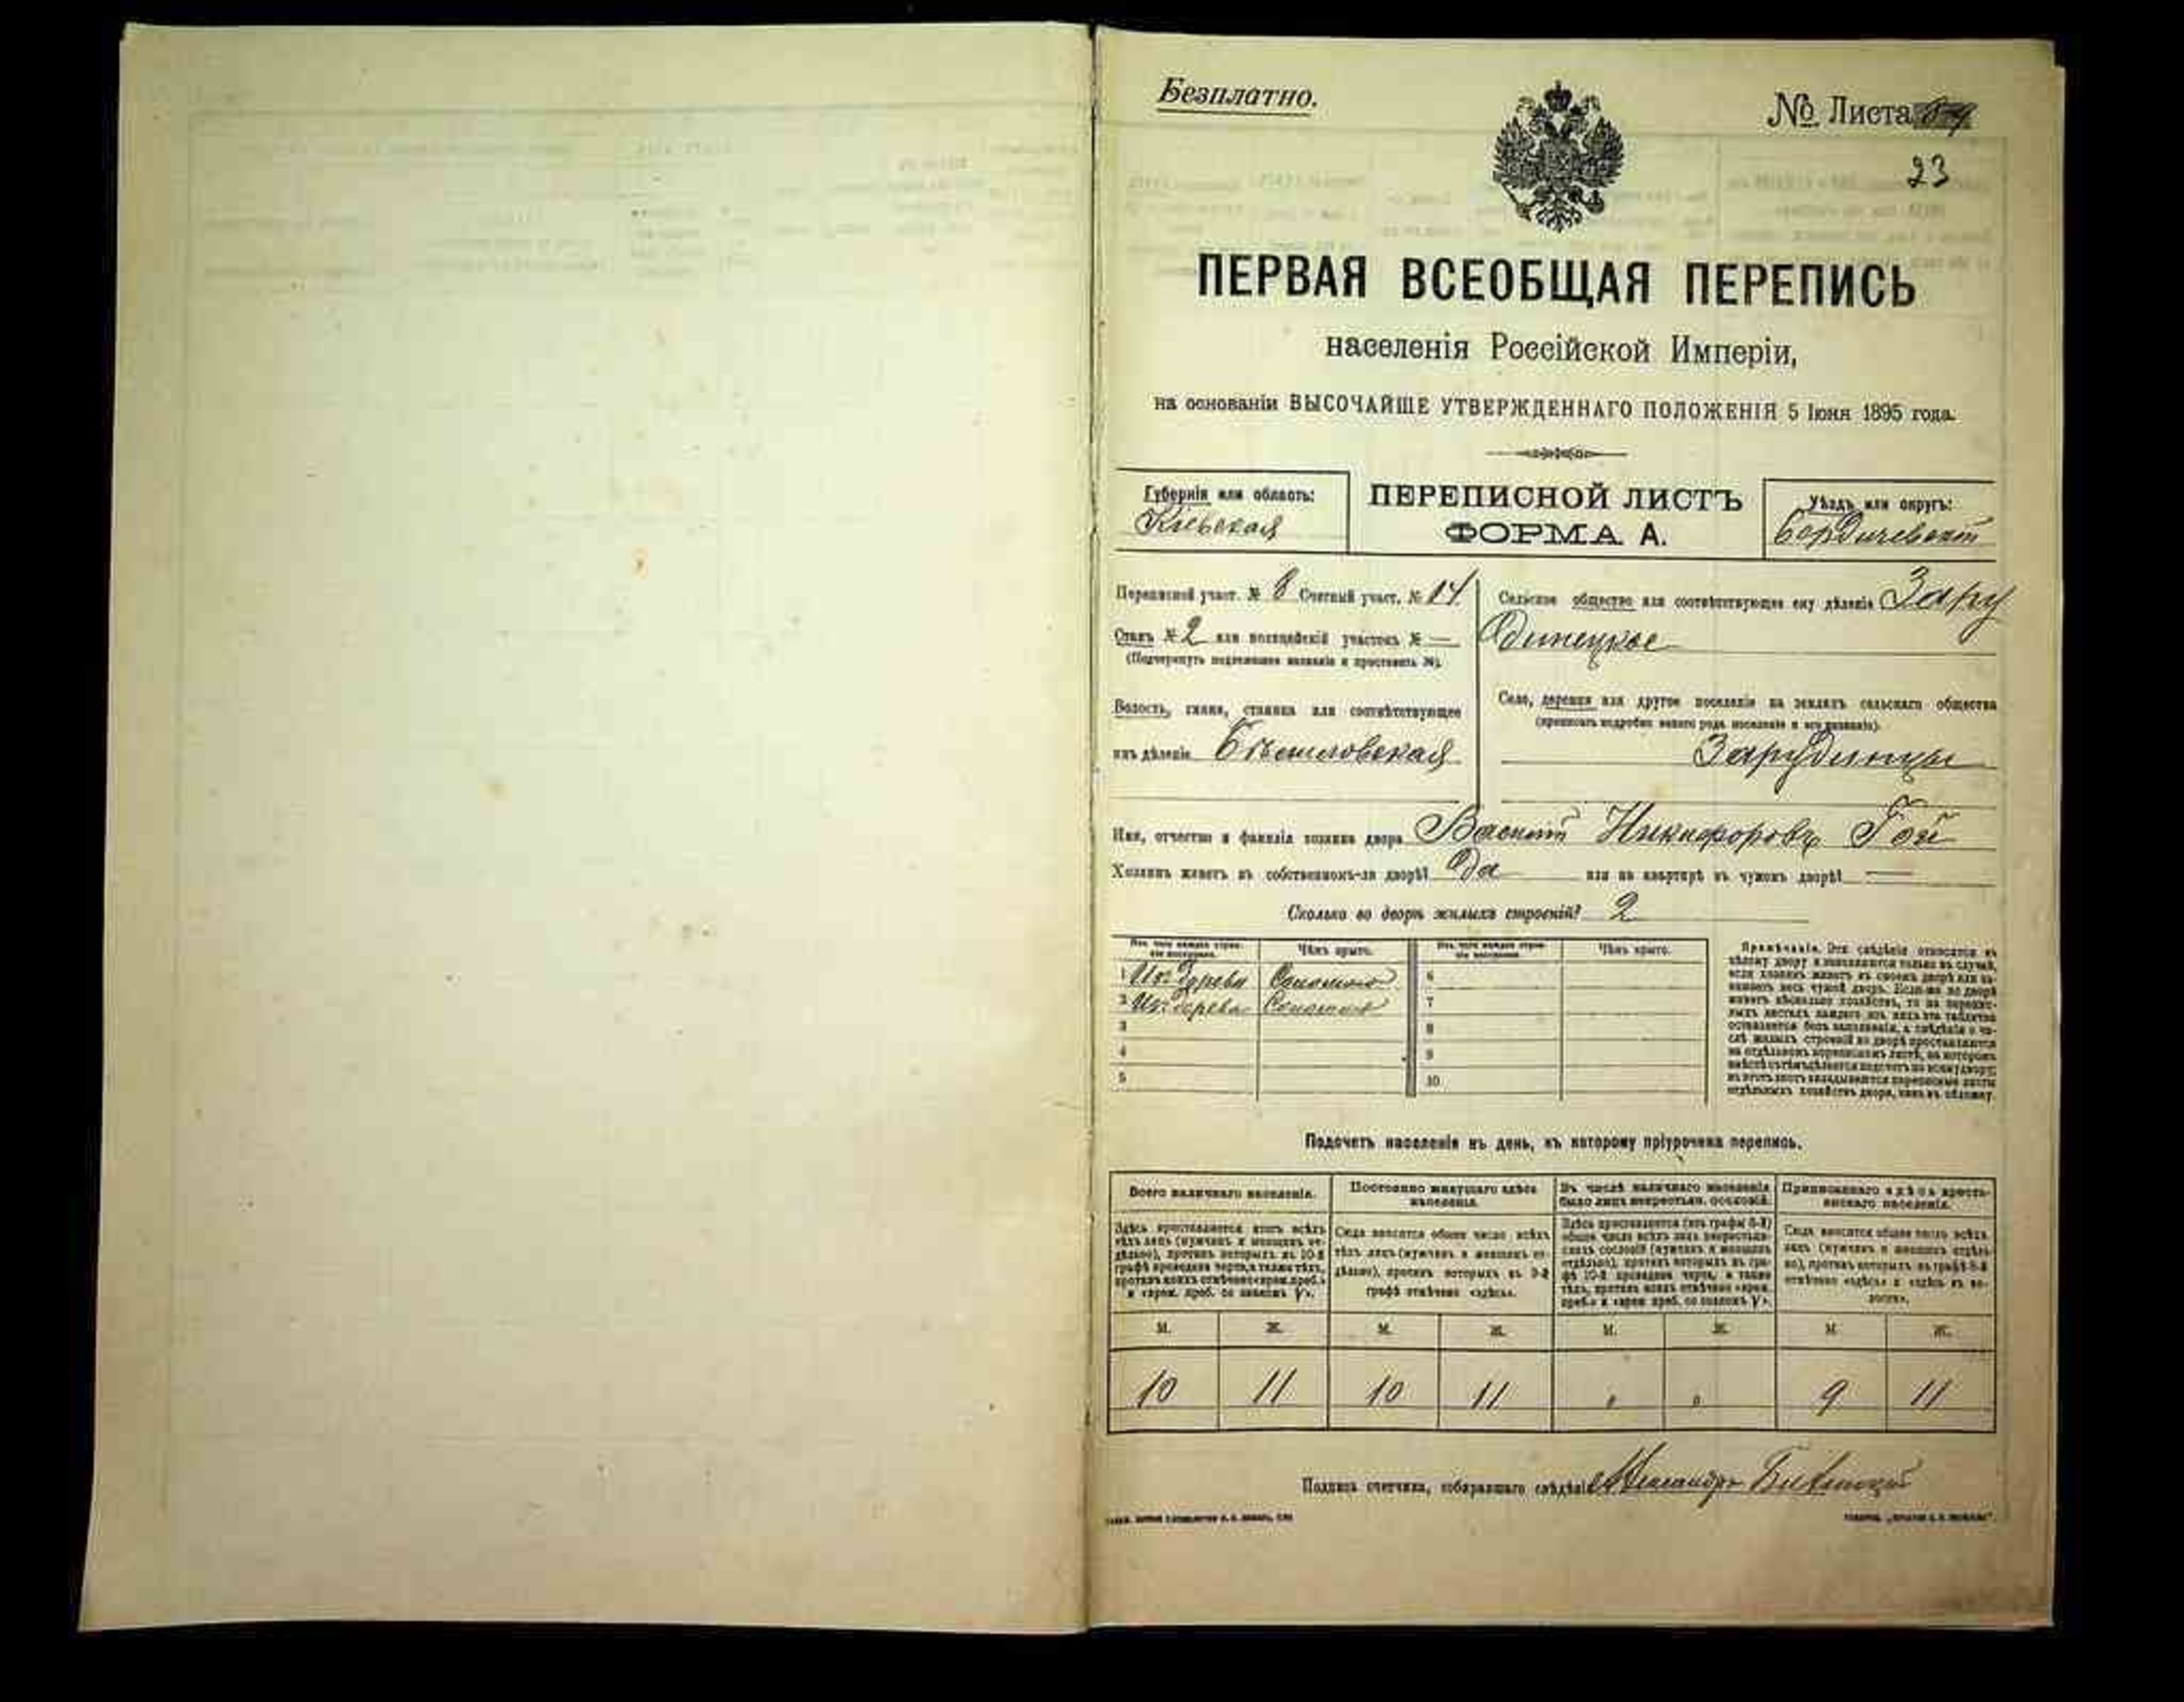 Безплатно.
№ Листа
23
ПЕРВАЯ ВСЕОБЩАЯ ПЕРЕПИСЬ
населенія Россійской Имперіи,
на основаніи ВЫСОЧАЙШЕ УТВЕРЖДЕННАГО ПОЛОЖЕНІЯ 5 Іюня 1895 года.
Губернія или область:
Кіевская
ПЕРЕПИСНОЙ ЛИСТЪ
ФОРМА А.
Уѣздъ или округъ:
Бердичевскій
Переписной участ. № 8 Счетный участ. № 14
Станъ № 2 или полицейскій участокъ № —
(Подчеркнуть подлежащее названіе и проставить №).
Волость, гмина, станица или соотвѣтствующее
имъ дѣленіе
Сельское общество или соотвѣтствующее ему дѣленіе Зару
динецкое
Село, деревня или другое поселеніе на земляхъ сельскаго общества
(прописать подробно какого рода поселеніе и его названіе).
Зарудинцы
Имя, отчество и фамилія хозяина двора Василій Никифоровъ Гой
Хозяинъ живетъ въ собственномъ-ли дворѣ? Да или на квартирѣ въ чужомъ дворѣ? —
Сколько во дворѣ жилыхъ строеній? 2
Изъ чего каждое строеніе построено. Чѣмъ крыто. Изъ чего каждое строеніе построено. Чѣмъ крыто.
1 Изъ дерева Соломою 6
2 Изъ дерева Соломою 7
3 8
4 9
5 10
Примѣчаніе. Эти свѣдѣнія относятся къ
цѣлому двору и заполняются только въ случаѣ,
если хозяинъ живетъ въ своемъ дворѣ или за-
нимаетъ весь чужой дворъ. Если-же во дворѣ
живетъ нѣсколько хозяйствъ, то на перепис-
ныхъ листахъ каждаго изъ нихъ эта табличка
оставляется безъ заполненія, а свѣдѣнія о чи-
слѣ жилыхъ строеній во дворѣ проставляются
на отдѣльномъ переписномъ листѣ, на которомъ
вмѣстѣ съ тѣмъ дѣлается подсчетъ по всему двору;
въ этотъ листъ вкладываются переписные листы
отдѣльныхъ хозяйствъ двора, какъ въ обложку.
Подсчетъ населенія въ день, къ которому пріурочена перепись.
Всего наличнаго населенія.
Здѣсь проставляется итогъ всѣхъ
тѣхъ лицъ (мужчинъ и женщинъ от-
дѣльно), противъ которыхъ въ 10-й
графѣ проведена черта, а также тѣхъ,
противъ коихъ отмѣчено «врем. преб.»
и «врем. преб. со знакомъ V».
Постоянно живущаго здѣсь
населенія.
Сюда вносится общее число всѣхъ
тѣхъ лицъ (мужчинъ и женщинъ от-
дѣльно), противъ которыхъ въ 9-й
графѣ отмѣчено «здѣсь».
Въ числѣ наличнаго населенія
было лицъ некрестьян. сословій.
Здѣсь проставляется (изъ графы 8-й)
общее число всѣхъ лицъ некрестьян-
скихъ сословій (мужчинъ и женщинъ
отдѣльно), противъ которыхъ въ гра-
фѣ 10-й проведена черта, а также
тѣхъ, противъ коихъ отмѣчено «врем.
преб.» и «врем. преб. со знакомъ V».
Приписаннаго здѣсь кресть-
янскаго населенія.
Сюда вносится общее число всѣхъ
лицъ (мужчинъ и женщинъ отдѣль-
но), противъ которыхъ въ графѣ 8-й
отмѣчено «здѣсь» и «здѣсь въ во-
лости».
М. Ж. М. Ж. М. Ж. М. Ж.
10 11 10 11 „ „ 9 11
Подпись счетчика, собиравшаго свѣдѣнія Александръ